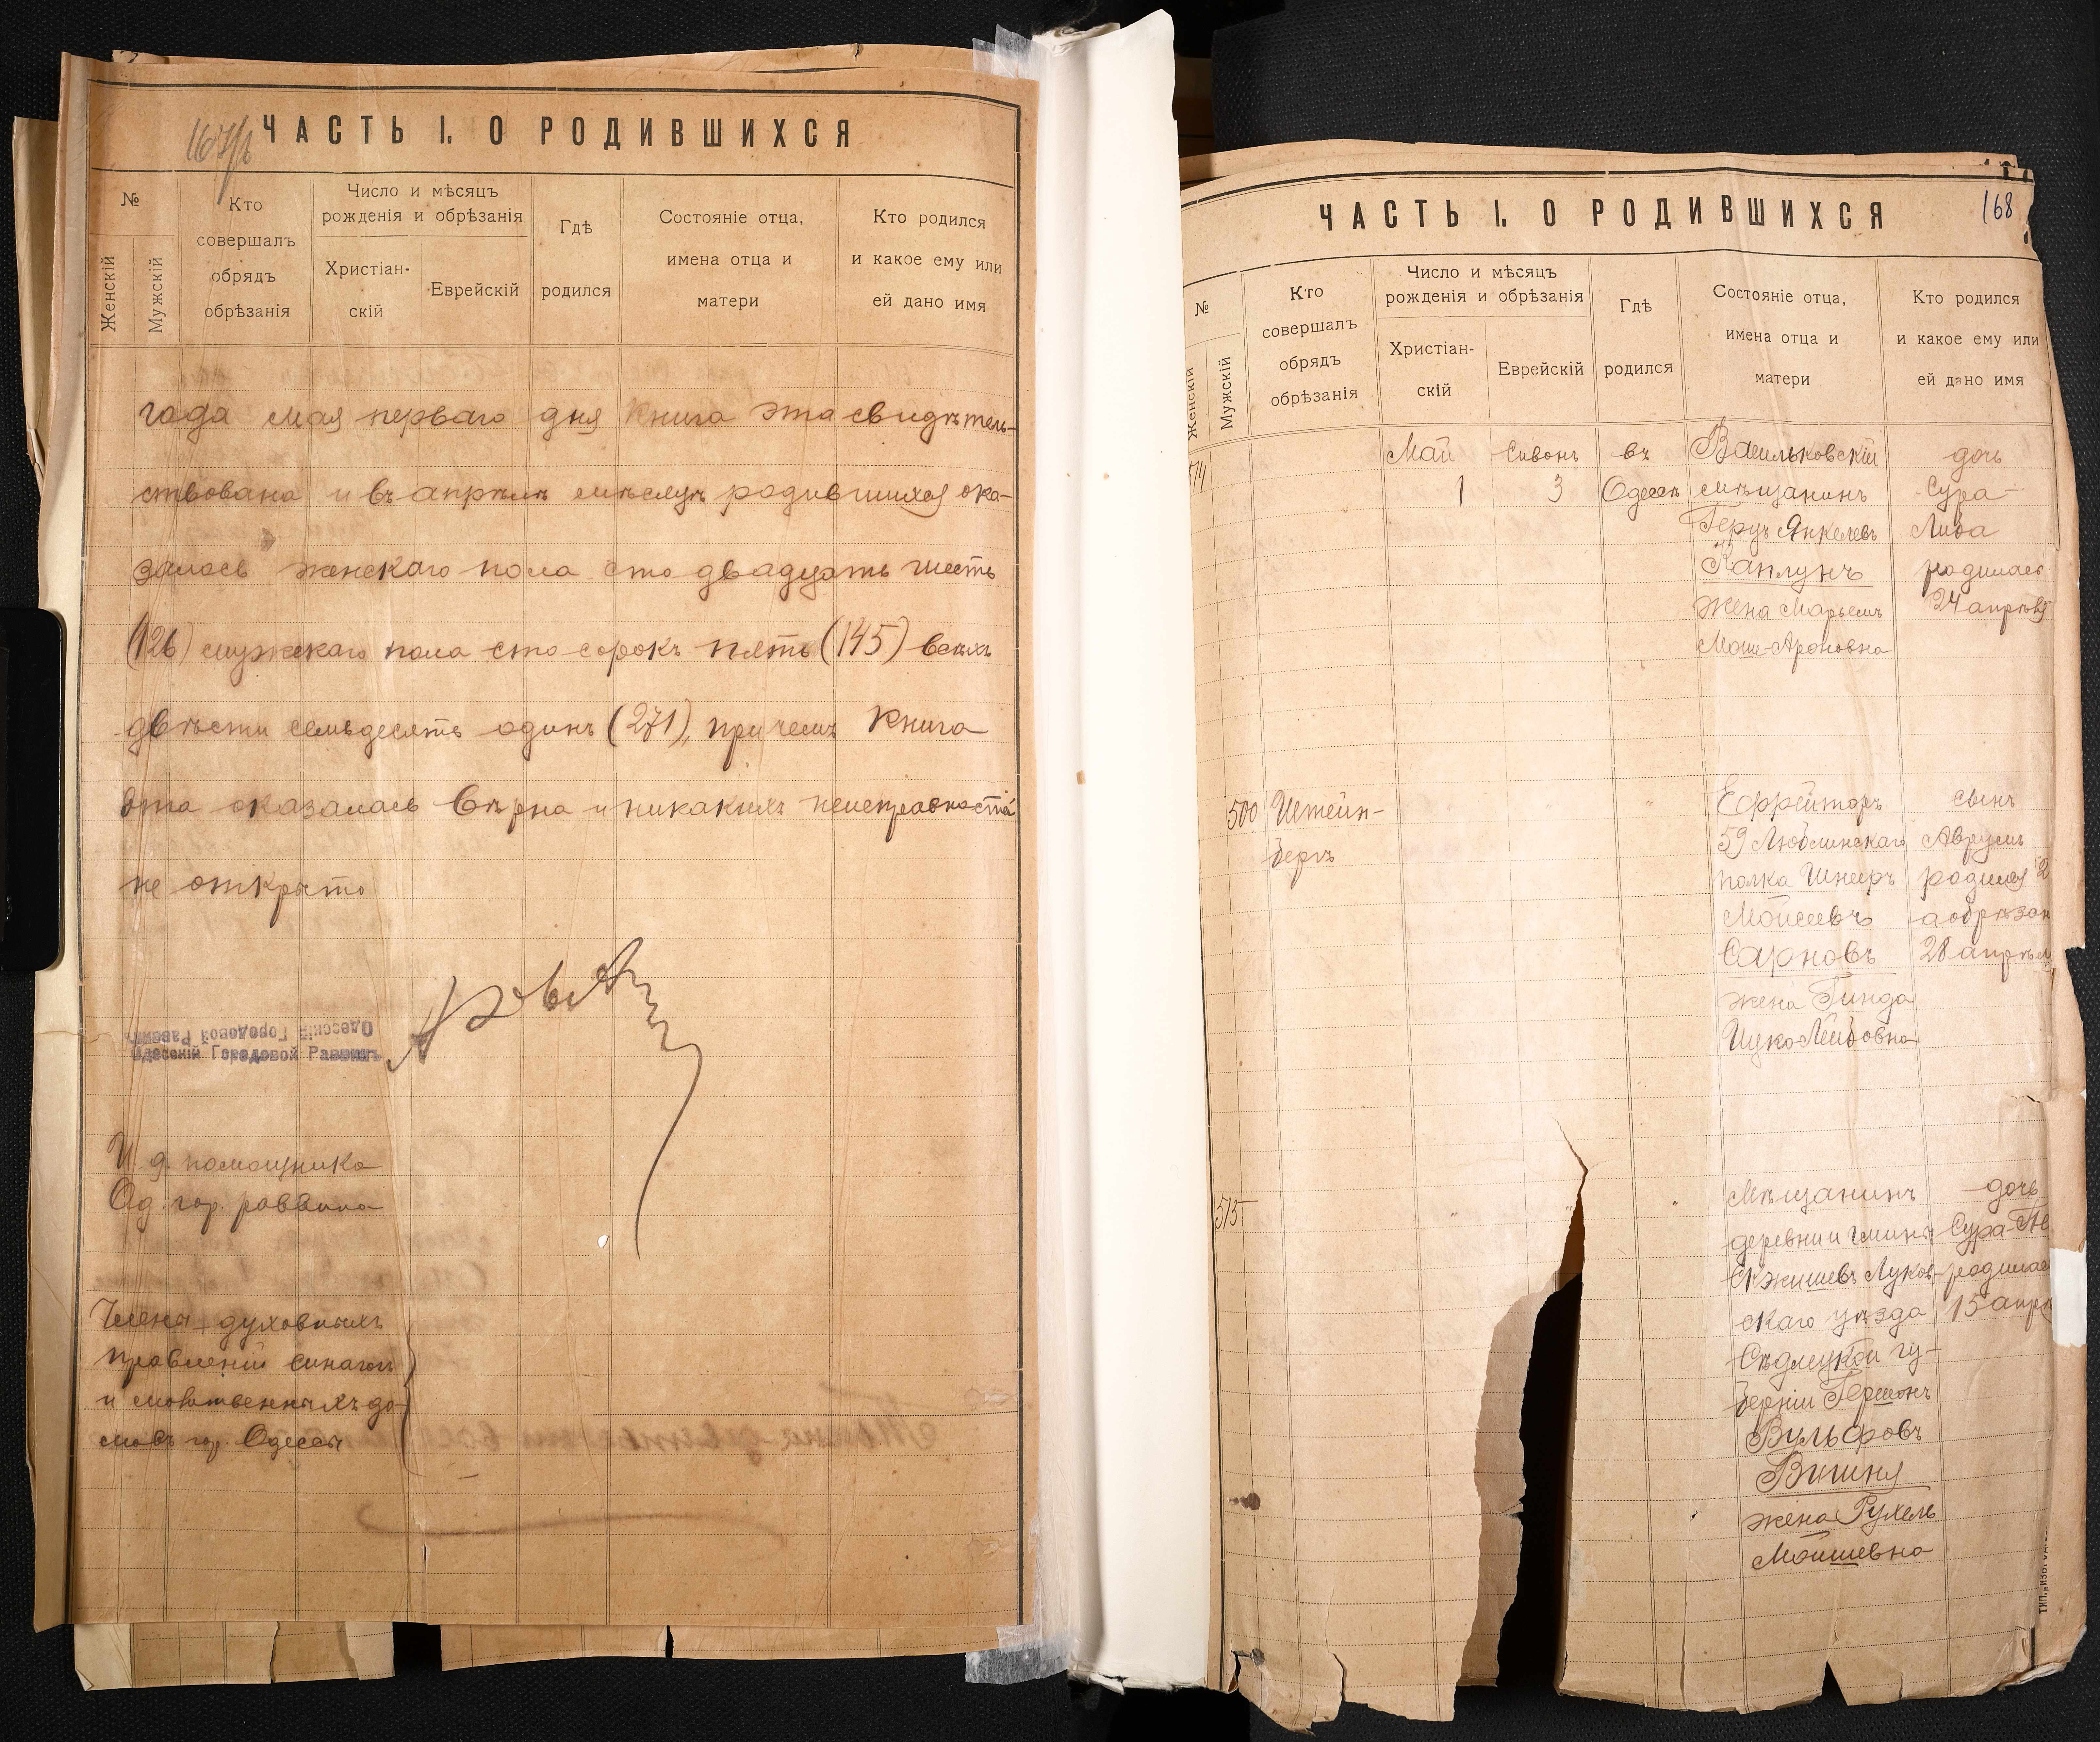 ЧАСТЬ I. О РОДИВШИХСЯ
№
Женскій
Мужскій
Кто
совершалъ
обрядъ
обрѣзанія
Число и мѣсяцъ
рожденія и обрѣзанія
Христіан-
скій
Еврейскій
Гдѣ
родился
Состояніе отца,
имена отца и
матери
Кто родился
и какое ему или
ей дано имя
года мая перваго дня книга эта свидѣтель-
ствована и въ апрѣлѣ мѣсяцѣ родившихся ока-
залось женскаго пола сто двадцать шесть
(126) мужскаго пола сто сорокъ пять (145) всѣхъ
двѣсти семьдесятъ одинъ (271), причемъ книга
эта оказалась вѣрна и никакихъ неисправностей
не открыто
Одесскій Городовой Раввинъ
Одесскій Городовой Раввинъ
И. д. помощника
Од. гор. раввина
Члены духовныхъ
правленій синагогъ
и молитвенныхъ до-
мовъ гор. Одессы
ЧАСТЬ I. О РОДИВШИХСЯ
168
№
Женскій
Мужскій
Кто
совершалъ
обрядъ
обрѣзанія
Число и мѣсяцъ
рожденія и обрѣзанія
Христіан-
скій
Еврейскій
Гдѣ
родился
Состояніе отца,
имена отца и
матери
Кто родился
и какое ему или
ей дано имя
514 Май Сивонъ въ Васильковскій дочь
1 3 Одессѣ мѣщанинъ Сура-
Герцъ Янкелевъ Либа
Каплунъ родилась
жена Марьемъ 24 апрѣля
Моше-Ароновна
500 Штейн- " " " Ефрейторъ сынъ
бергъ 59 Люблинскаго Аврумъ
полка Шнееръ родился 2
Моисеевъ а обрѣзан
Сарновъ 28 апрѣл
жена Гинда
Ицко-Лейбовна
515 " " " Мѣщанинъ дочь
деревни и гмины Сура-
Скжишевъ Луков- родилас
скаго уѣзда 15 апрѣ
Сѣдлецкой гу-
берніи Гершонъ
Вульфовъ
Вишня
жена Рухель
Мошшевна